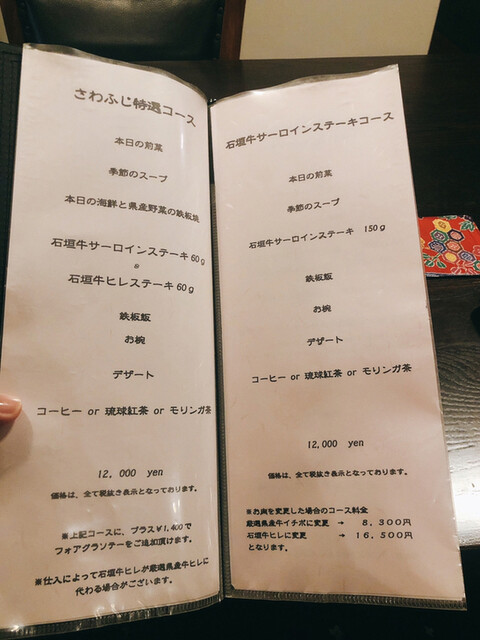 さわふじ特選コース
本日の前菜
季節のスープ
本日の海鮮と県産野菜の鉄板焼
石垣牛サーロインステーキ60g
石垣牛ヒレステーキ60g
鉄板飯
お椀
デザート
コーヒー or 琉球紅茶 or モリンガ茶
12,000 yen
価格は、全て税抜き表示となっております。
※上記コースに、プラス¥1,400で
フォアグランテーをご追加頂けます。
※仕入によって石垣牛ヒレが厳選県産牛ヒレに
代わる場合がございます。
石垣牛サーロインステーキコース
本日の前菜
季節のスープ
石垣牛サーロインステーキ 150g
鉄板飯
お椀
デザート
コーヒー or 琉球紅茶 or モリンガ茶
12,000 yen
価格は、全て税抜き表示となっております。
※お肉を変更した場合のコース料金
厳選県産牛イチボに変更 → 8,300円
石垣牛ヒレに変更 → 16,500円
となります。